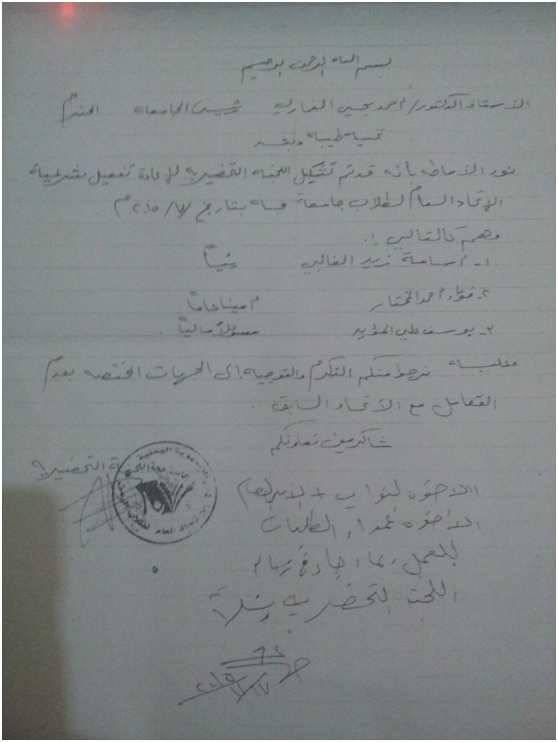 بسم الله الرحمن الرحيم
الأستاذ الدكتور/ أحمد يحيى الغاربي رئيس الجامعه المحترم
تحية طيبة وبعد
نود الأحاطه بأنه قد تم تشكيل اللجنه التحضيريه لإعادة تفعيل شرعية
الإتحاد العام لطلاب جامعة بتاريخ ٢٠١٥م
وهم كالتالي :
١- أسامة زيد الغالبي رئيساً
٢- فؤاد أحمد المختار أميناً عاماً
٣- يوسف علي المؤيد مسؤلاً مالياً .
وعليه نرجوا منكم التكرم والتوجيه إلى الجهات المختصه بعدم
التعامل مع الأتحاد السابق .
شاكرين تعاونكم
التحضيريه
الاخوه النواب + الامين العام
الأخوه عمداء الكليات
للعمل بما جاء في
اللجنة التحضيرية